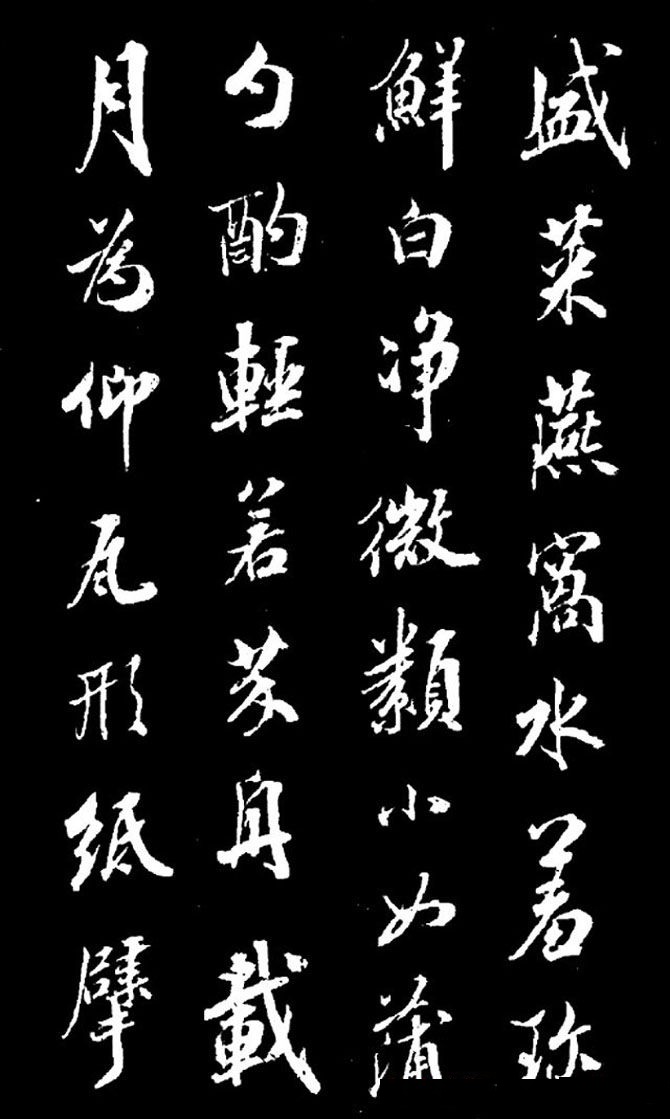 盛菜燕窩水着珎
鮮白净微類小如蒲
勺酌輕若芥舟載
月為仰瓦形紙擘